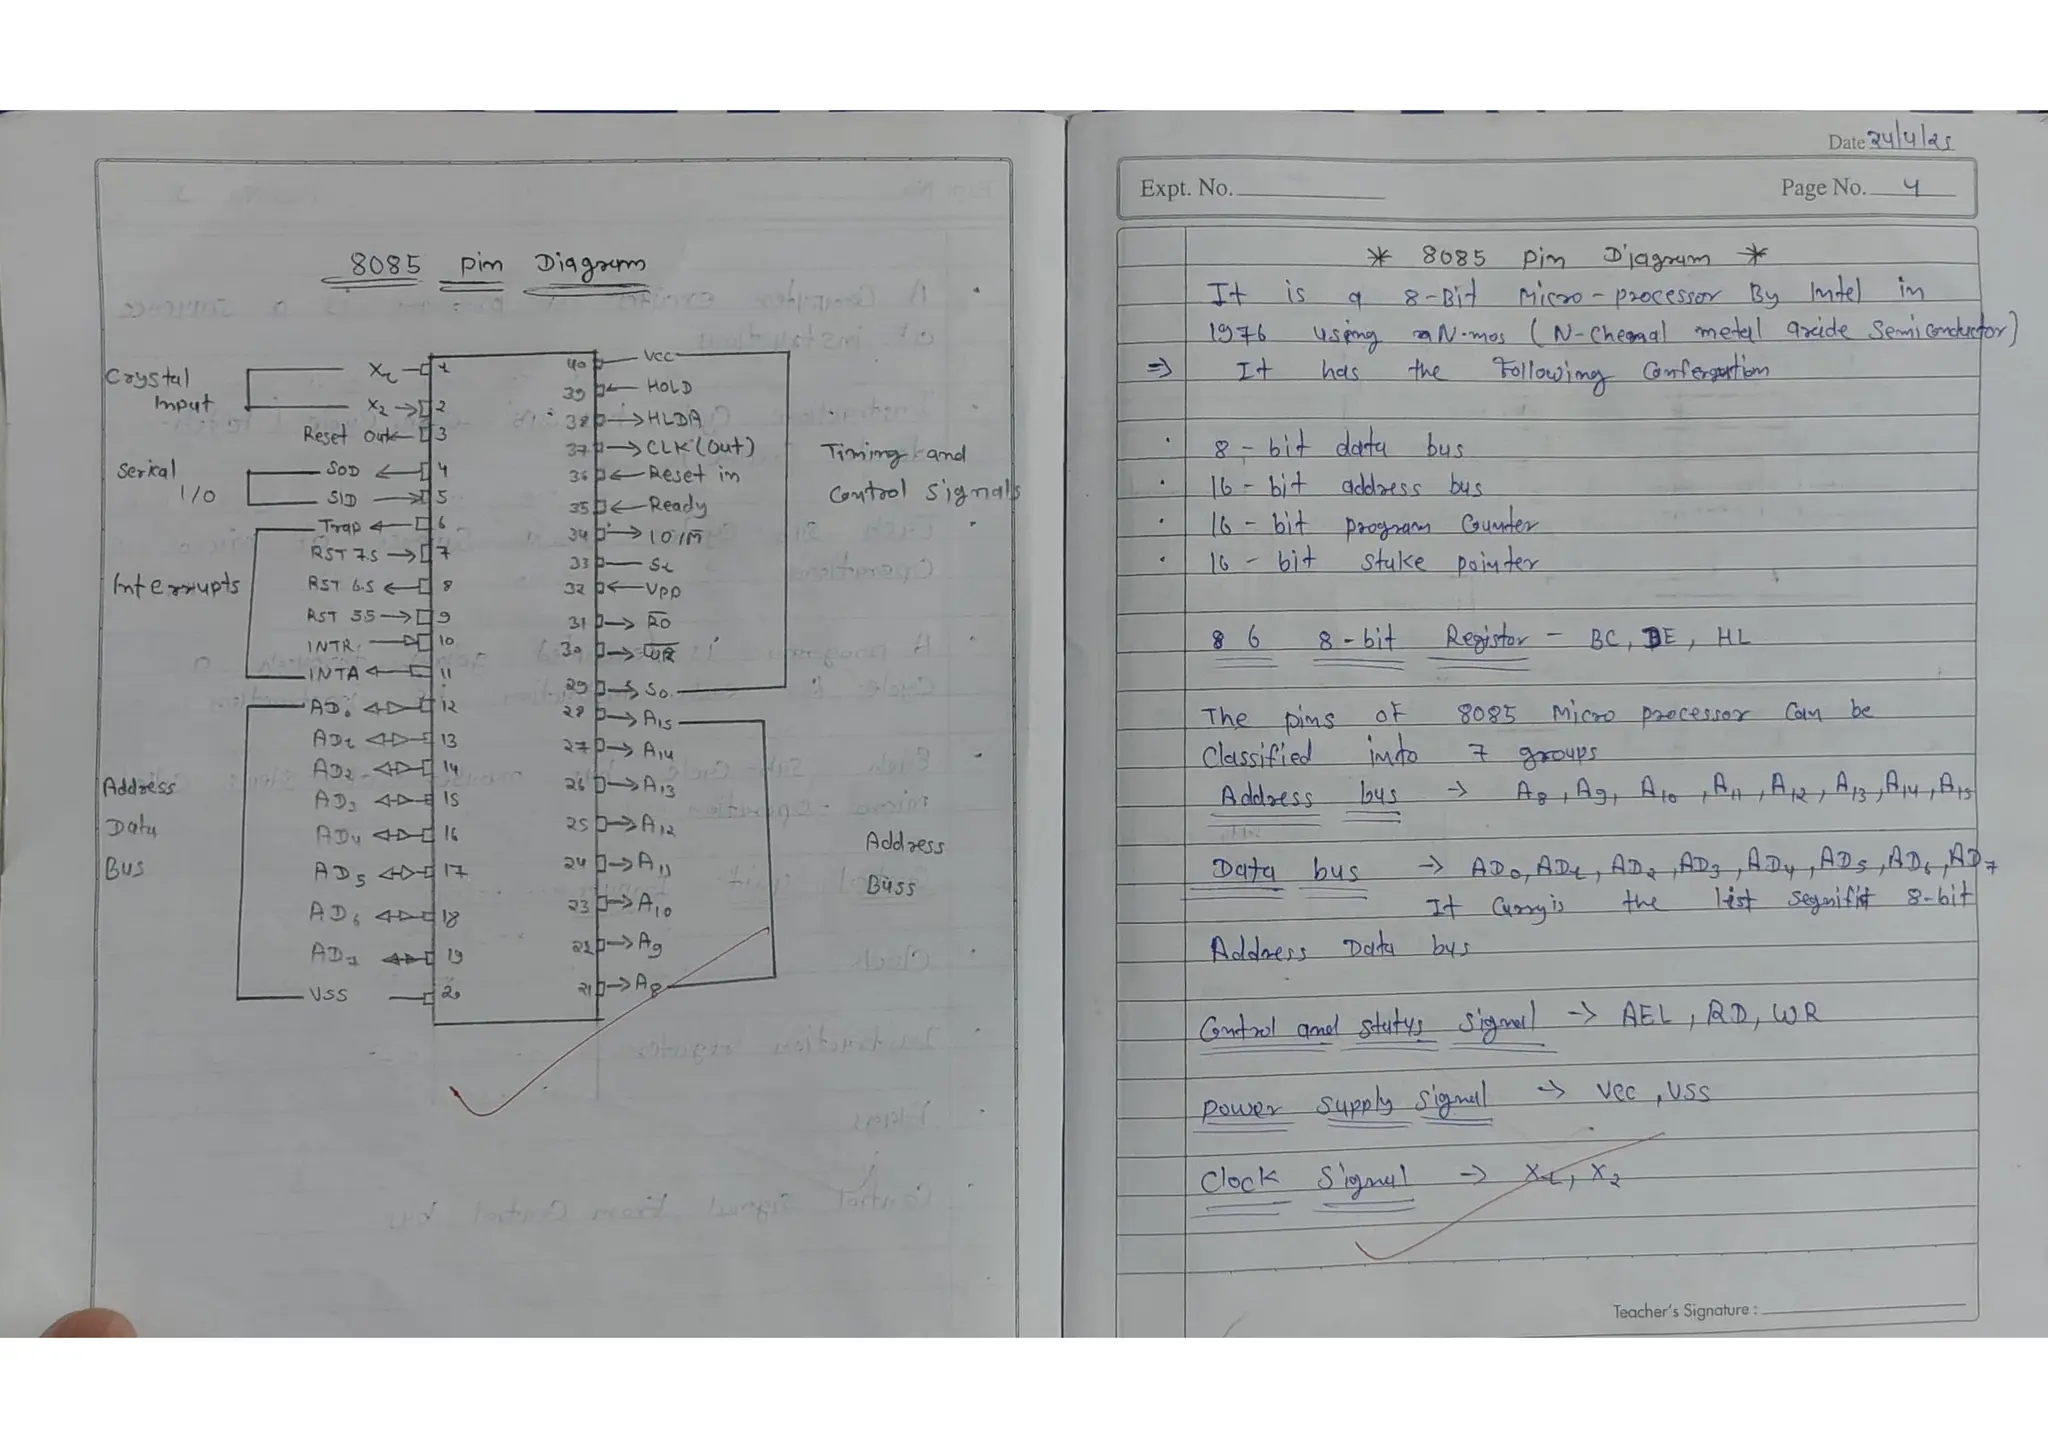 8085 pin Diagram
Crystal
Input
X1 1
X2 2
Reset out 3
Serial
I/O
SOD 4
SID 5
Interrupts
Trap 6
RST 7.5 7
RST 6.5 8
RST 55 9
INTR 10
INTA 11
Address
Data
Bus
AD0 12
AD1 13
AD2 14
AD3 15
AD4 16
AD5 17
AD6 18
AD7 19
VSS 20
40 Vcc
39 HOLD
38 HLDA
37 CLK (Out)
36 Reset in
35 Ready
34 IO/M̅
33 S1
32 VPP
31 R̅D̅
30 W̅R̅
29 S0
Timing and
Control Signals
28 A15
27 A14
26 A13
25 A12
24 A11
23 A10
22 A9
21 A8
Address
Buss
Date 24/4/25
Expt. No.
Page No. 4
* 8085 pin Diagram *
It is a 8-Bit Micro-processor By Intel in
1976 using N-mos (N-Chennal metal oxide Semiconductor)
⇒ It has the Following
• 8-bit data bus
• 16-bit address bus
• 16-bit program Counter
• 16-bit stake pointer
6 8-bit Registor - BC, DE, HL
The pins of 8085 Micro processor Can be
Classified into 7 groups
Address bus → A8, A9, A10, A11, A12, A13, A14, A15
Data bus → AD0, AD1, AD2, AD3, AD4, AD5, AD6, AD7
It Carryis the list 8-bit
Address Data bus
Control and status signal → AEL, RD, WR
Power supply signal → Vcc, VSS
Clock Signal → X1, X2
Teacher's Signature :